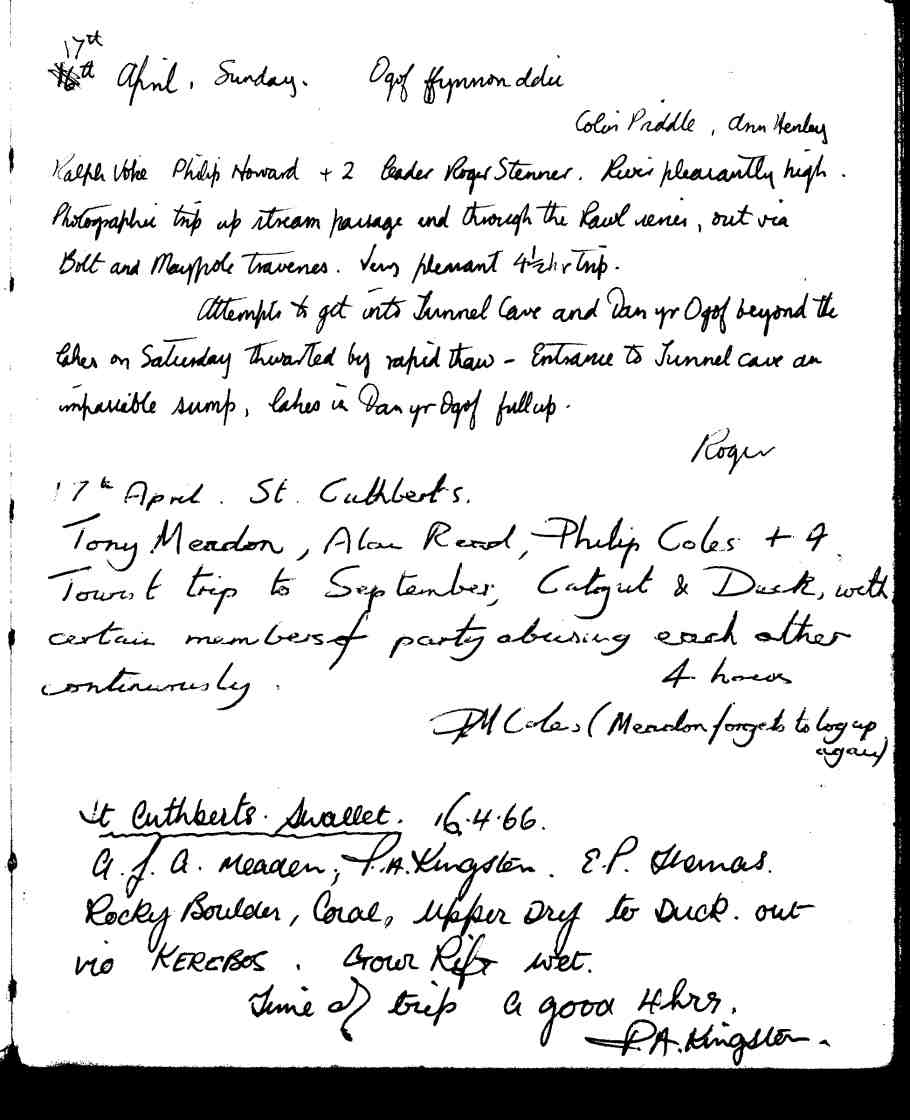 17th
April, Sunday. Ogof ffynnon ddu
Colin Priddle, Ann Henley
Ralph Voke Philip Howard + 2 leader Roger Stenner. River pleasantly high.
Photographic trip up stream passage and through the Rawl series, out via
Bolt and Maypole Traverses. Very pleasant 4½hr Trip.
Attempts to get into Tunnel Cave and Dan yr Ogof beyond the
lakes on Saturday thwarted by rapid thaw - Entrance to Tunnel cave an
impassible sump, lakes in Dan yr Ogof full up.
Roger
17th April. St. Cuthberts.
Tony Meadon, Alan Read, Philip Coles + 9.
Tourist trip to September, Catgut & Duck, with
certain members of party abusing each other
continuously.
4 hours
PM Coles (Meadon forgets to log up
again)
St Cuthberts. Swallet. 16.4.66.
A. J. A. Meaden, P.A. Kingston. E.P. Thomas.
Rocky Boulder, Coral, Upper Dry to Duck. out
via KEREBOS. Gour Rift wet.
Time of trip a good 4hrs.
P.A. Kingston.